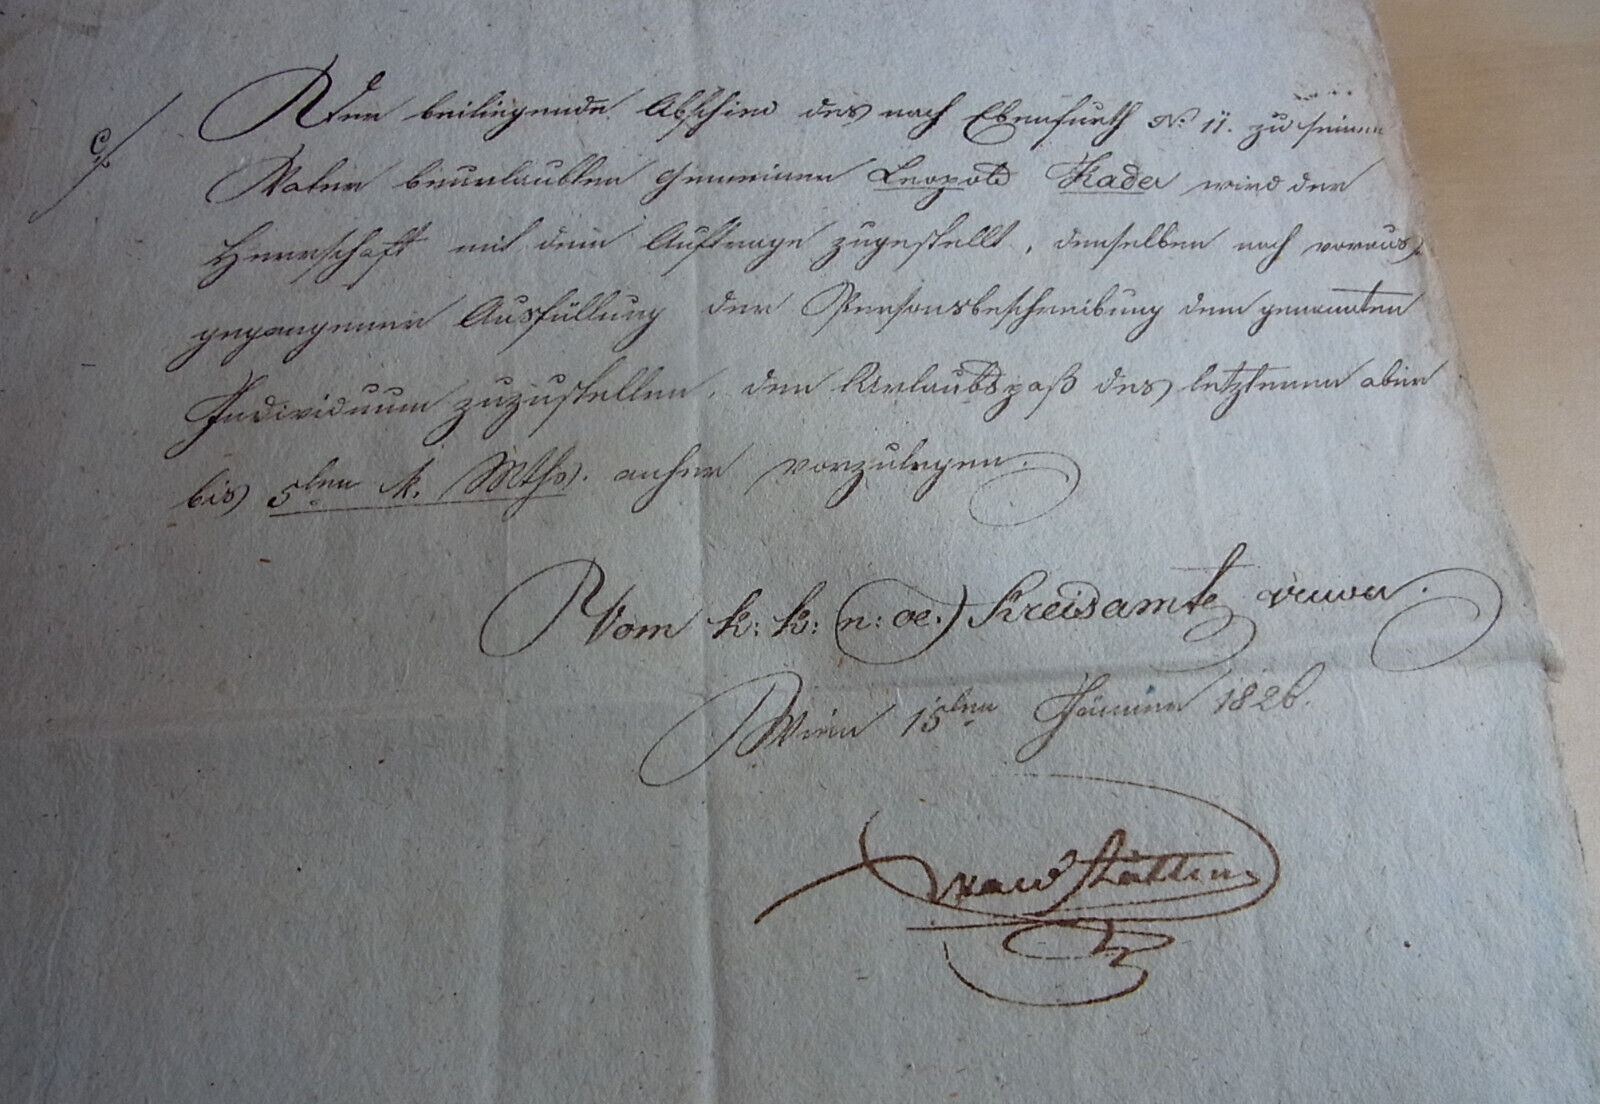 Der beiliegende Abschied des nach Ebenfurth No 11. zu seinem
Vater beurlaubten Gemeinen Leopold Kader wird der
Herrschaft mit dem Auftrage zugestellt, denselben nach voraus
gegangener Ausfüllung der Personsbeschreibung dem genannten
Individuum zuzustellen, den Urlaubspaß des letzteren aber
bis 5ten k. Mths. anher vorzulegen.
Vom k: k: (n: oe:) Kreisamte
Wien 15ten Jänner 1826.